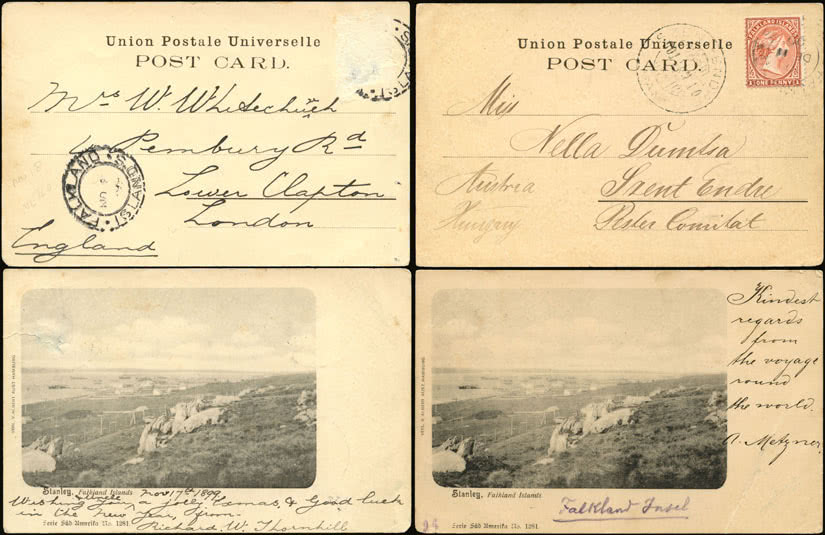 Union Postale Universelle
POST CARD.
Mrs W. Whitechurch
4 Pembury Rd
Lower Clapton
London
England
FALKLAND ISLANDS
Union Postale Universelle
POST CARD.
FALKLAND ISLANDS
ONE PENNY
Miss
Nella Dumtsa
Austria
Szent Endre
Hungary
Pester Comitat
Stanley, Falkland Islands
Nov 17th 1899
Wishing you & Uncle a jolly Xmas, & Good luck
in the New Year, from
Serie Süd Amerika No. 1281.
Richard. W. Thornhill
Kindest
regards
from
the voyage
round
the world.
A. Metzner.
Stanley, Falkland Islands
Falkland Insel
Serie Süd Amerika No. 1281.